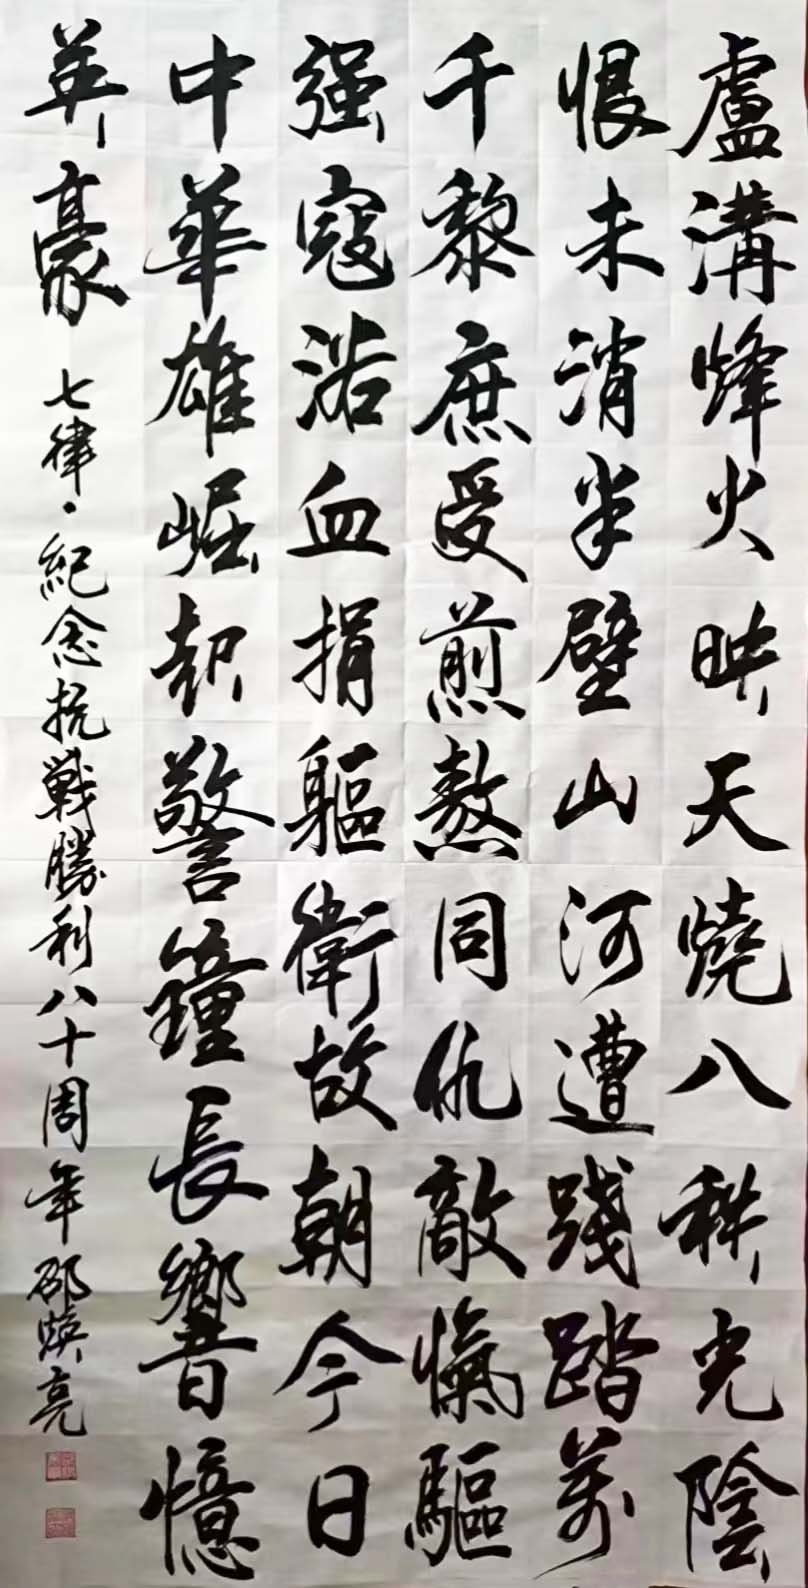 盧溝烽火映天燒八秩光陰
恨未消半壁山河遭踐踏萬
千黎庶受煎熬同仇敵愾驅
强寇浴血捐軀衛故朝今日
中華雄崛起警鐘長響憶
英豪
七律·紀念抗戰勝利八十周年邵煥亮